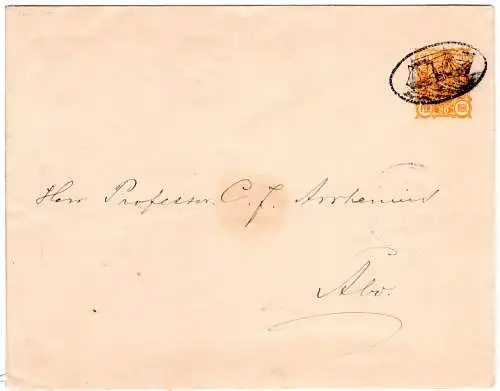 Herr Professor. C. F. Arrhenius
Åbo.